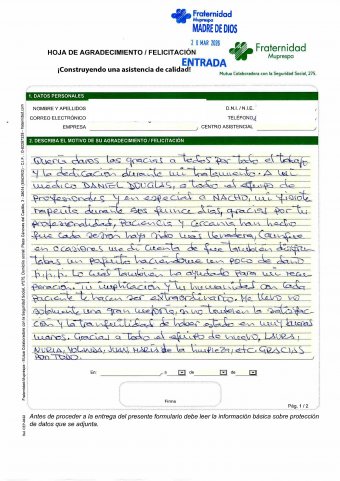 Fraternidad
Muprespa
MADRE DE DIOS
26 MAR 2026
ENTRADA
HOJA DE AGRADECIMIENTO / FELICITACIÓN
¡Construyendo una asistencia de calidad!
Fraternidad
Muprespa
Mutua Colaboradora con la Seguridad Social, 275.
1. DATOS PERSONALES
NOMBRE Y APELLIDOS
D.N.I. / N.I.E.
CORREO ELECTRÓNICO
TELÉFONO
EMPRESA
CENTRO ASISTENCIAL
2. DESCRIBA EL MOTIVO DE SU AGRADECIMIENTO / FELICITACIÓN
Quería daros las gracias a todos por todo el trabajo
y la dedicación durante mi tratamiento. A mi
médico DANIEL DOUGLAS, a todo el equipo de
Profesionales y en especial a NACHO, mi fisiote
rapeuta durante sus quince días, gracias por tu
profesionalidad, Paciencia y cercanía han hecho
que cada sesión haya sido más llevadera, aunque
en ocasiones me di cuenta de que también disfru
tabas un poquito haciéndome un poco de daño
Lo cual también ha ayudado para mi recu
peración, tu implicación y tu humanidad con cada
Paciente te hacen ser extraordinario. Me llevo no
solamente una gran mejoría, si no también la satisfac
ción y la tranquilidad de haber estado en muy buenas
manos. Gracias a todo el equipo de nuevo, LAURA,
NURIA, YOLANDA, JUAN, MARÍA de la limpieza, etc GRACIAS
POR TODO.
En: , a de de
Firma
Pág. 1 / 2
Antes de proceder a la entrega del presente formulario debe leer la información básica sobre protección
de datos que se adjunta.